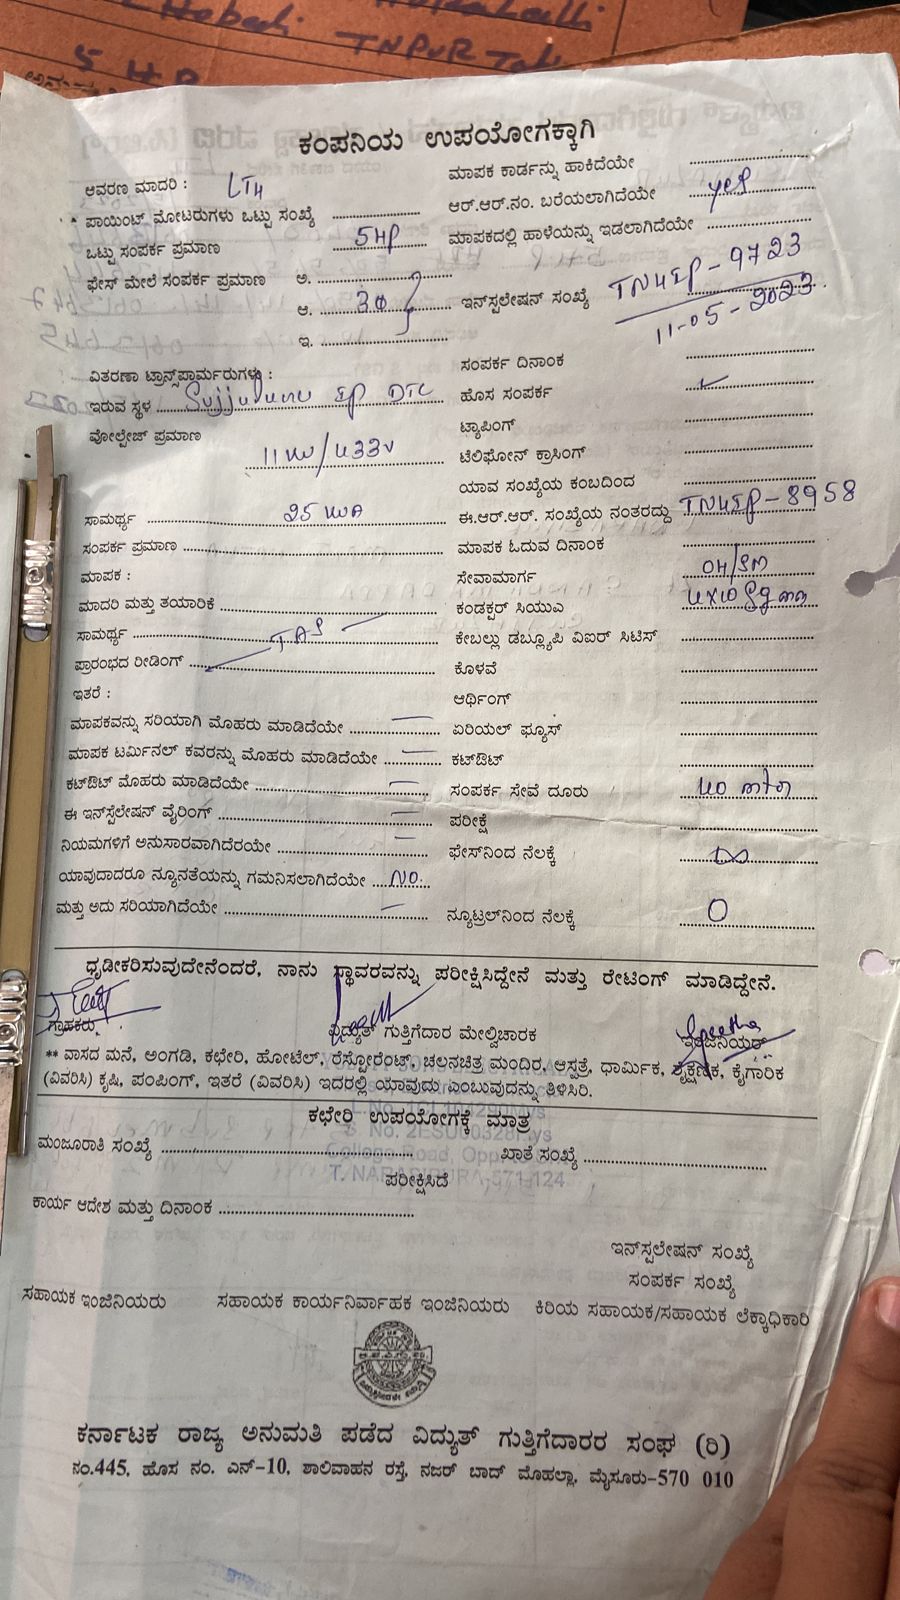 TNPUR Talk
5 H.P
ಕಂಪನಿಯ ಉಪಯೋಗಕ್ಕಾಗಿ
ಆವರಣ ಮಾದರಿ : LT4
ಮಾಪಕ ಕಾರ್ಡನ್ನು ಹಾಕಿದೆಯೇ
ಪಾಯಿಂಟ್ ಮೋಟರುಗಳು ಒಟ್ಟು ಸಂಖ್ಯೆ
ಆರ್.ಆರ್.ನಂ. ಬರೆಯಲಾಗಿದೆಯೇ yes
ಒಟ್ಟು ಸಂಪರ್ಕ ಪ್ರಮಾಣ 5HP
ಮಾಪಕದಲ್ಲಿ ಹಾಳೆಯನ್ನು ಇಡಲಾಗಿದೆಯೇ
ಫೇಸ್ ಮೇಲೆ ಸಂಪರ್ಕ ಪ್ರಮಾಣ ಅ.
ಆ. 3Φ
ಇನ್‌ಸ್ಟಲೇಷನ್ ಸಂಖ್ಯೆ TN4IP-9723
11-05-2023
ಇ.
ಸಂಪರ್ಕ ದಿನಾಂಕ
ವಿತರಣಾ ಟ್ರಾನ್ಸ್‌ಫಾರ್ಮರುಗಳು :
ಇರುವ ಸ್ಥಳ IP DTC
ಹೊಸ ಸಂಪರ್ಕ ✓
ವೋಲ್ಟೇಜ್ ಪ್ರಮಾಣ 11KV/433V
ಟ್ಯಾಪಿಂಗ್
ಟೆಲಿಫೋನ್ ಕ್ರಾಸಿಂಗ್
ಯಾವ ಸಂಖ್ಯೆಯ ಕಂಬದಿಂದ
ಸಾಮರ್ಥ್ಯ 25 KVA
ಈ.ಆರ್.ಆರ್. ಸಂಖ್ಯೆಯ ನಂತರದ್ದು TN4IP-8958
ಸಂಪರ್ಕ ಪ್ರಮಾಣ
ಮಾಪಕ ಓದುವ ದಿನಾಂಕ
ಮಾಪಕ :
ಸೇವಾಮಾರ್ಗ OH/SM
ಮಾದರಿ ಮತ್ತು ತಯಾರಿಕೆ
ಕಂಡಕ್ಟರ್ ಸಿಯುವ 4X10 Sqmm
ಸಾಮರ್ಥ್ಯ
ಕೇಬಲ್ಲು ಡಬ್ಲ್ಯೂಪಿ ವಿಐರ್ ಸಿಟಿಸ್
ಪ್ರಾರಂಭದ ರೀಡಿಂಗ್
ಕೊಳವೆ
ಇತರೆ :
ಆರ್ಥಿಂಗ್
ಮಾಪಕವನ್ನು ಸರಿಯಾಗಿ ಮೊಹರು ಮಾಡಿದೆಯೇ
ಏರಿಯಲ್ ಫ್ಯೂಸ್
ಮಾಪಕ ಟರ್ಮಿನಲ್ ಕವರನ್ನು ಮೊಹರು ಮಾಡಿದೆಯೇ
ಕಟ್‌ಔಟ್
ಕಟ್‌ಔಟ್ ಮೊಹರು ಮಾಡಿದೆಯೇ
ಸಂಪರ್ಕ ಸೇವೆ ದೂರು 40 mtr
ಈ ಇನ್‌ಸ್ಟೆಲೇಷನ್ ವೈರಿಂಗ್
ಪರೀಕ್ಷೆ
ನಿಯಮಗಳಿಗೆ ಅನುಸಾರವಾಗಿದೆರಯೇ
ಫೇಸ್‌ನಿಂದ ನೆಲಕ್ಕೆ ∞
ಯಾವುದಾದರೂ ನ್ಯೂನತೆಯನ್ನು ಗಮನಿಸಲಾಗಿದೆಯೇ NO.
ಮತ್ತು ಅದು ಸರಿಯಾಗಿದೆಯೇ
ನ್ಯೂಟ್ರಲ್‌ನಿಂದ ನೆಲಕ್ಕೆ 0
ಧೃಡೀಕರಿಸುವುದೇನೆಂದರೆ, ನಾನು ಸ್ಥಾವರವನ್ನು ಪರೀಕ್ಷಿಸಿದ್ದೇನೆ ಮತ್ತು ರೇಟಿಂಗ್ ಮಾಡಿದ್ದೇನೆ.
ಗ್ರಾಹಕರು ವಿದ್ಯುತ್ ಗುತ್ತಿಗೆದಾರ ಮೇಲ್ವಿಚಾರಕ ಇಂಜಿನಿಯರ್
** ವಾಸದ ಮನೆ, ಅಂಗಡಿ, ಕಛೇರಿ, ಹೋಟೆಲ್, ರೆಸ್ಟೋರೆಂಟ್, ಚಲನಚಿತ್ರ ಮಂದಿರ, ಆಸ್ಪತ್ರೆ, ಧಾರ್ಮಿಕ, ಶೈಕ್ಷಣಿಕ, ಕೈಗಾರಿಕ
(ವಿವರಿಸಿ) ಕೃಷಿ, ಪಂಪಿಂಗ್, ಇತರೆ (ವಿವರಿಸಿ) ಇದರಲ್ಲಿ ಯಾವುದು ಎಂಬುವುದನ್ನು ತಿಳಿಸಿರಿ.
ಕಛೇರಿ ಉಪಯೋಗಕ್ಕೆ ಮಾತ್ರ
ಮಂಜೂರಾತಿ ಸಂಖ್ಯೆ ಖಾತೆ ಸಂಖ್ಯೆ
College Road,
T. NARASIPURA-571 124
ಪರೀಕ್ಷಿಸಿದೆ
ಕಾರ್ಯ ಆದೇಶ ಮತ್ತು ದಿನಾಂಕ
ಇನ್‌ಸ್ಟಲೇಷನ್ ಸಂಖ್ಯೆ
ಸಂಪರ್ಕ ಸಂಖ್ಯೆ
ಸಹಾಯಕ ಇಂಜಿನಿಯರು ಸಹಾಯಕ ಕಾರ್ಯನಿರ್ವಾಹಕ ಇಂಜಿನಿಯರು ಕಿರಿಯ ಸಹಾಯಕ/ಸಹಾಯಕ ಲೆಕ್ಕಾಧಿಕಾರಿ
ಕರ್ನಾಟಕ ರಾಜ್ಯ ಅನುಮತಿ ಪಡೆದ ವಿದ್ಯುತ್ ಗುತ್ತಿಗೆದಾರರ ಸಂಘ (ರಿ)
ನಂ.445, ಹೊಸ ನಂ. ಎನ್-10, ಶಾಲಿವಾಹನ ರಸ್ತೆ, ನಜರ್ ಬಾದ್ ಮೊಹಲ್ಲಾ, ಮೈಸೂರು-570 010